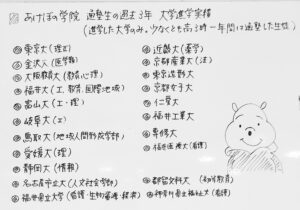 あけぼの学院 通塾生の過去3年 大学進学実績
(進学した大学のみ。少なくとも高3時一年間は通塾した生徒)
東京大(理Ⅱ)
金沢大(医学類)
大阪教育大(教育心理)
福井大(工、教育、国際地域)
富山大(工・理)
岐阜大(工)
鳥取大(地域人間形成学部)
愛媛大(理)
静岡大(情報)
名古屋市立大(人文社会学部)
福井県立大(看護・生物資源・経済)
近畿大(薬学)
京都産業大(法)
東京造形大
京都女子大
仁愛大
福井工業大
専修大
福井医療大(看護)
都留文科大(初等教育)
神奈川県立福祉大(看護)